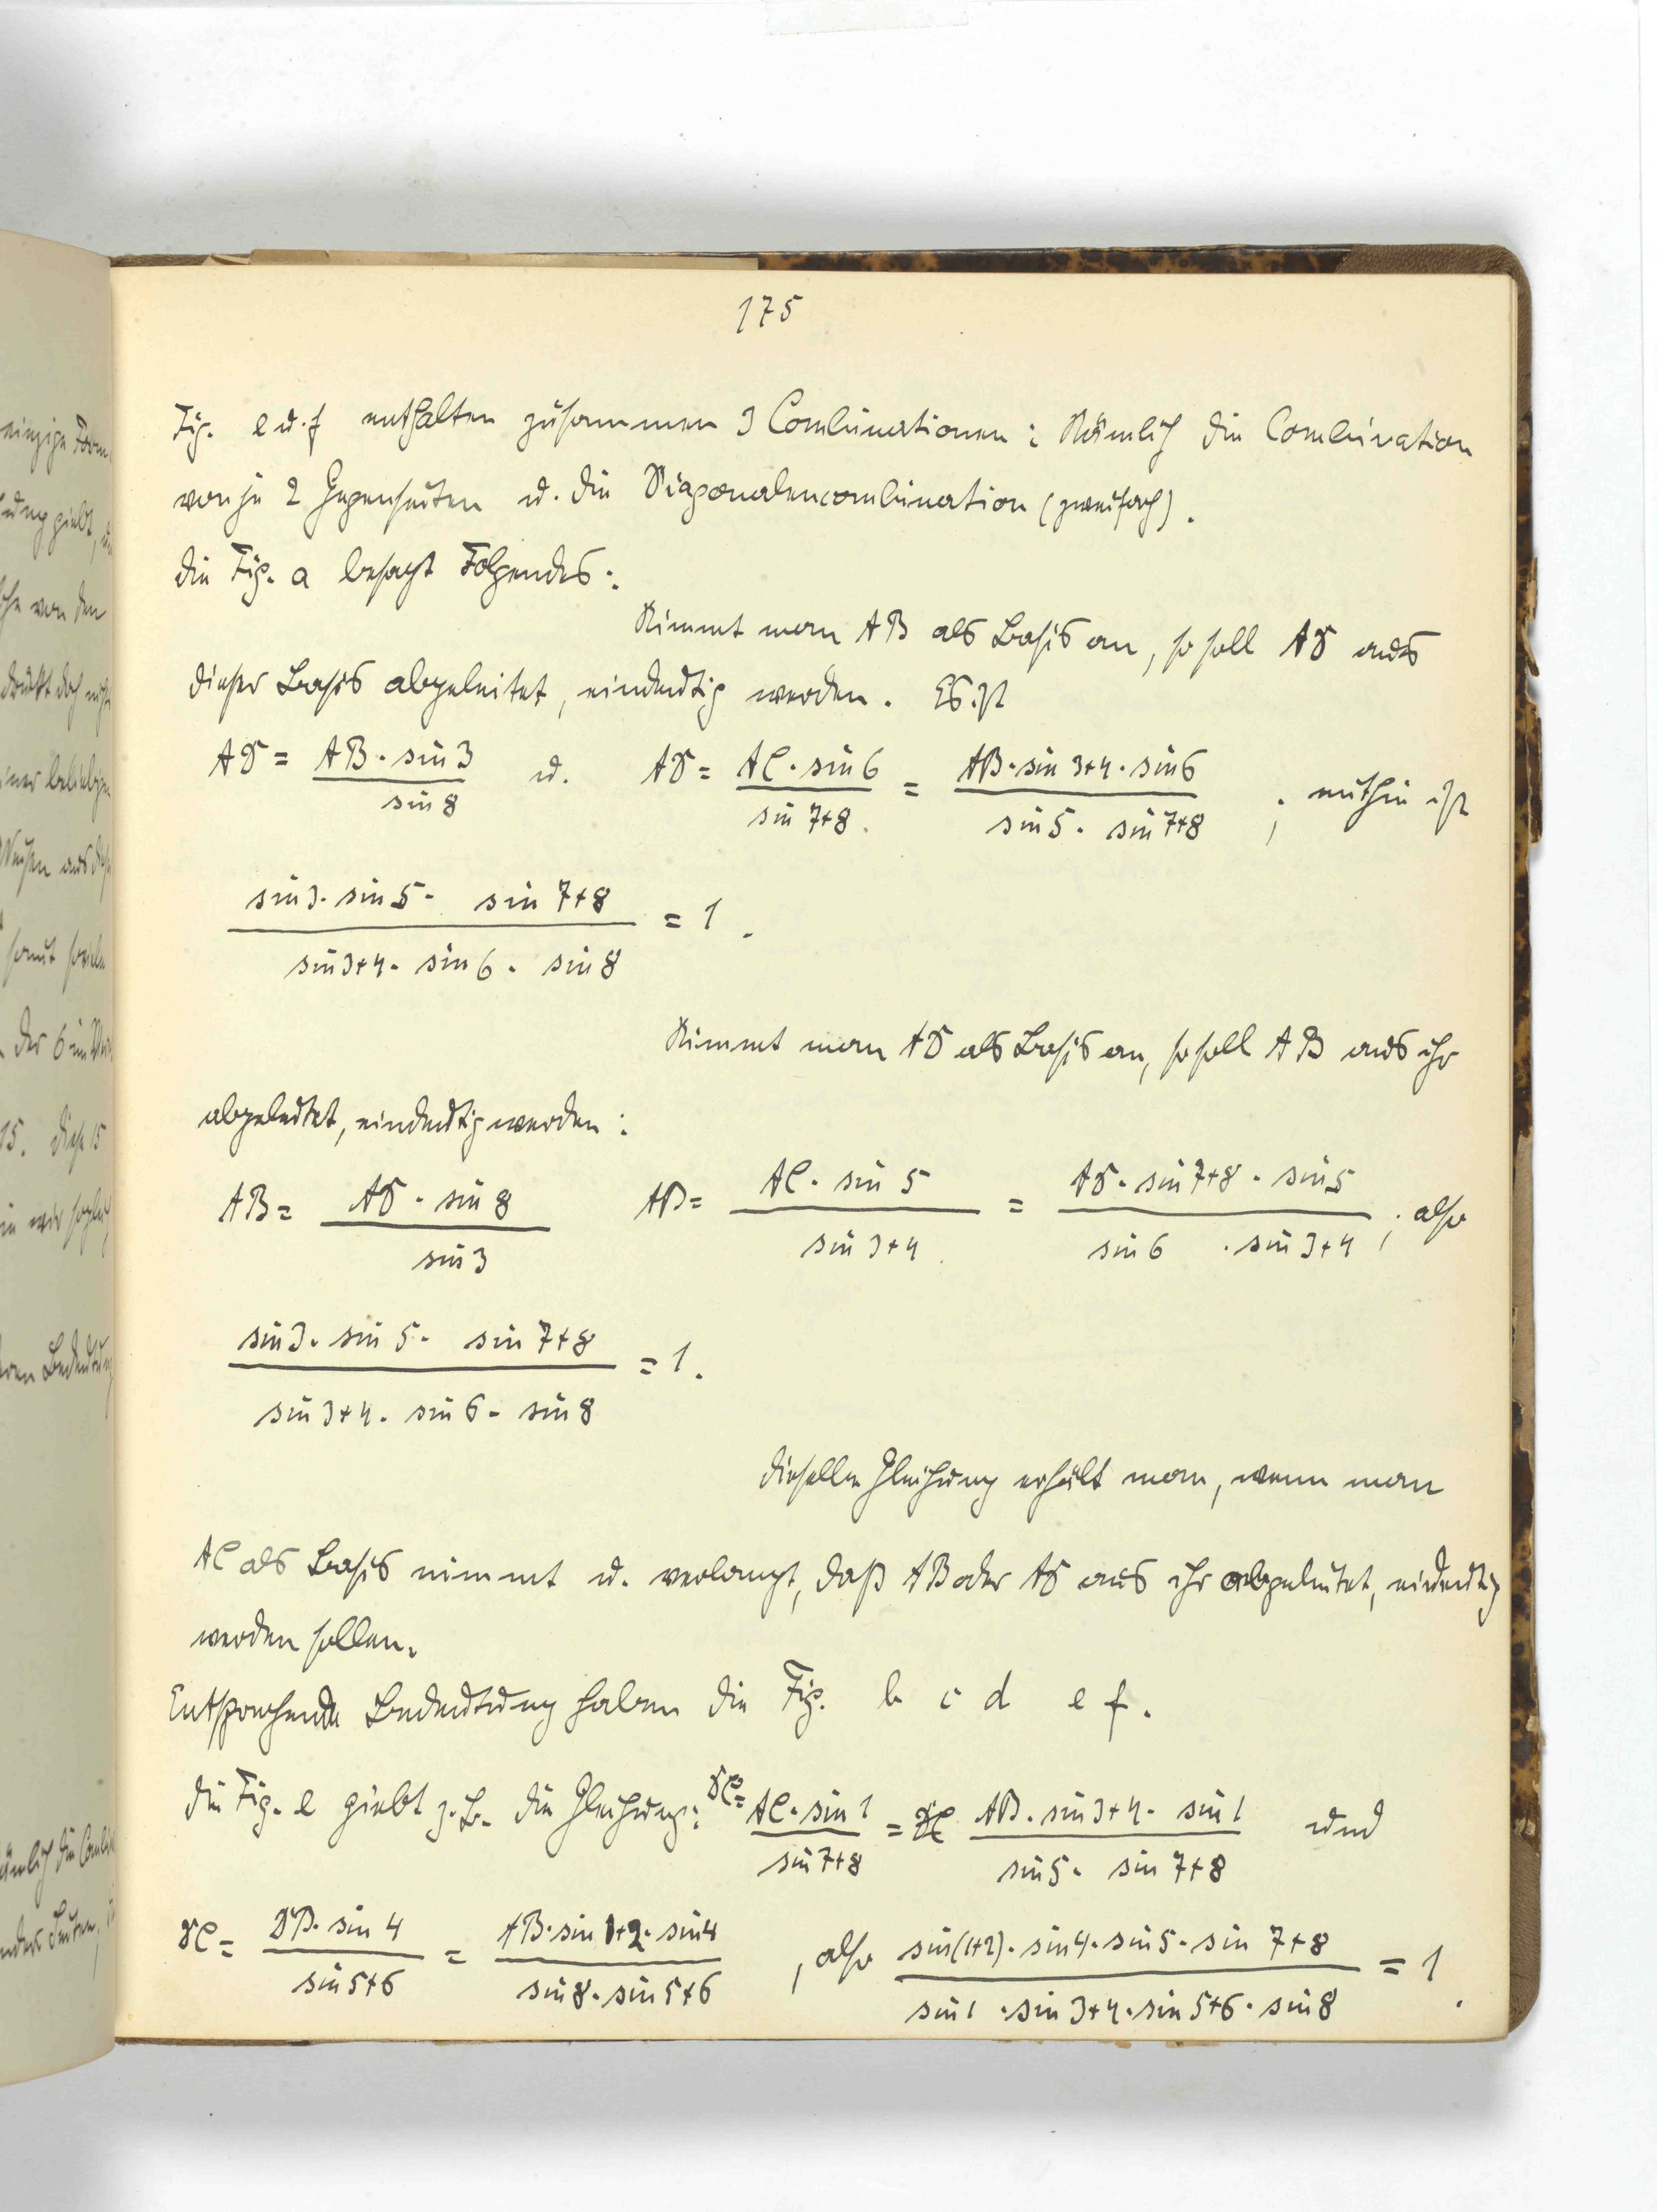 einzige Form
dung giebt, u
von den
drückt doch nicht
einer beliebigen
Weisen aus die
somit
der 6 im
15. Diese 15
wir sogleich
deren Bedeutung
nämlich die Comb
175
Fig. e u. f enthalten zusammen 3 Combinationen: Nämlich die Combination
von je 2 Gegenseiten u. die Diagonalencombination (zweifach).
Die Fig. a besagt Folgendes:
Nimmt man AB als Basis an, so soll AD aus
dieser Basis abgeleitet, eindeutig werden. Es ist
AD = AB · sin 3 / sin 8 u. AD = AC · sin 6 / sin 7+8 = AB · sin 3+4 · sin 6 / sin 5 · sin 7+8 ; mithin ist
sin 3 · sin 5 · sin 7+8 / sin 3+4 · sin 6 · sin 8 = 1.
Nimmt man AD als Basis an, so soll AB aus ihr
abgeleitet, eindeutig werden:
AB = AD · sin 8 / sin 3 AB = AC · sin 5 / sin 3+4 = AD · sin 7+8 · sin 5 / sin 6 · sin 3+4 ; also
sin 3 · sin 5 · sin 7+8 / sin 3+4 · sin 6 · sin 8 = 1.
Dieselbe Gleichung erhält man, wenn man
AC als Basis nimmt u. verlangt, daß AB oder AD aus ihr abgeleitet, eindeutig
werden sollen.
Entsprechende Bedeutung haben die Fig. b c d e f.
Die Fig. e giebt z. B. die Gleichung: DC = AC · sin 1 / sin 7+8 = AB · sin 3+4 · sin 1 / sin 5 · sin 7+8 und
DC = DB · sin 4 / sin 5+6 = AB · sin 1+2 · sin 4 / sin 8 · sin 5+6 , also sin (1+2) · sin 4 · sin 5 · sin 7+8 / sin 1 · sin 3+4 · sin 5+6 · sin 8 = 1.